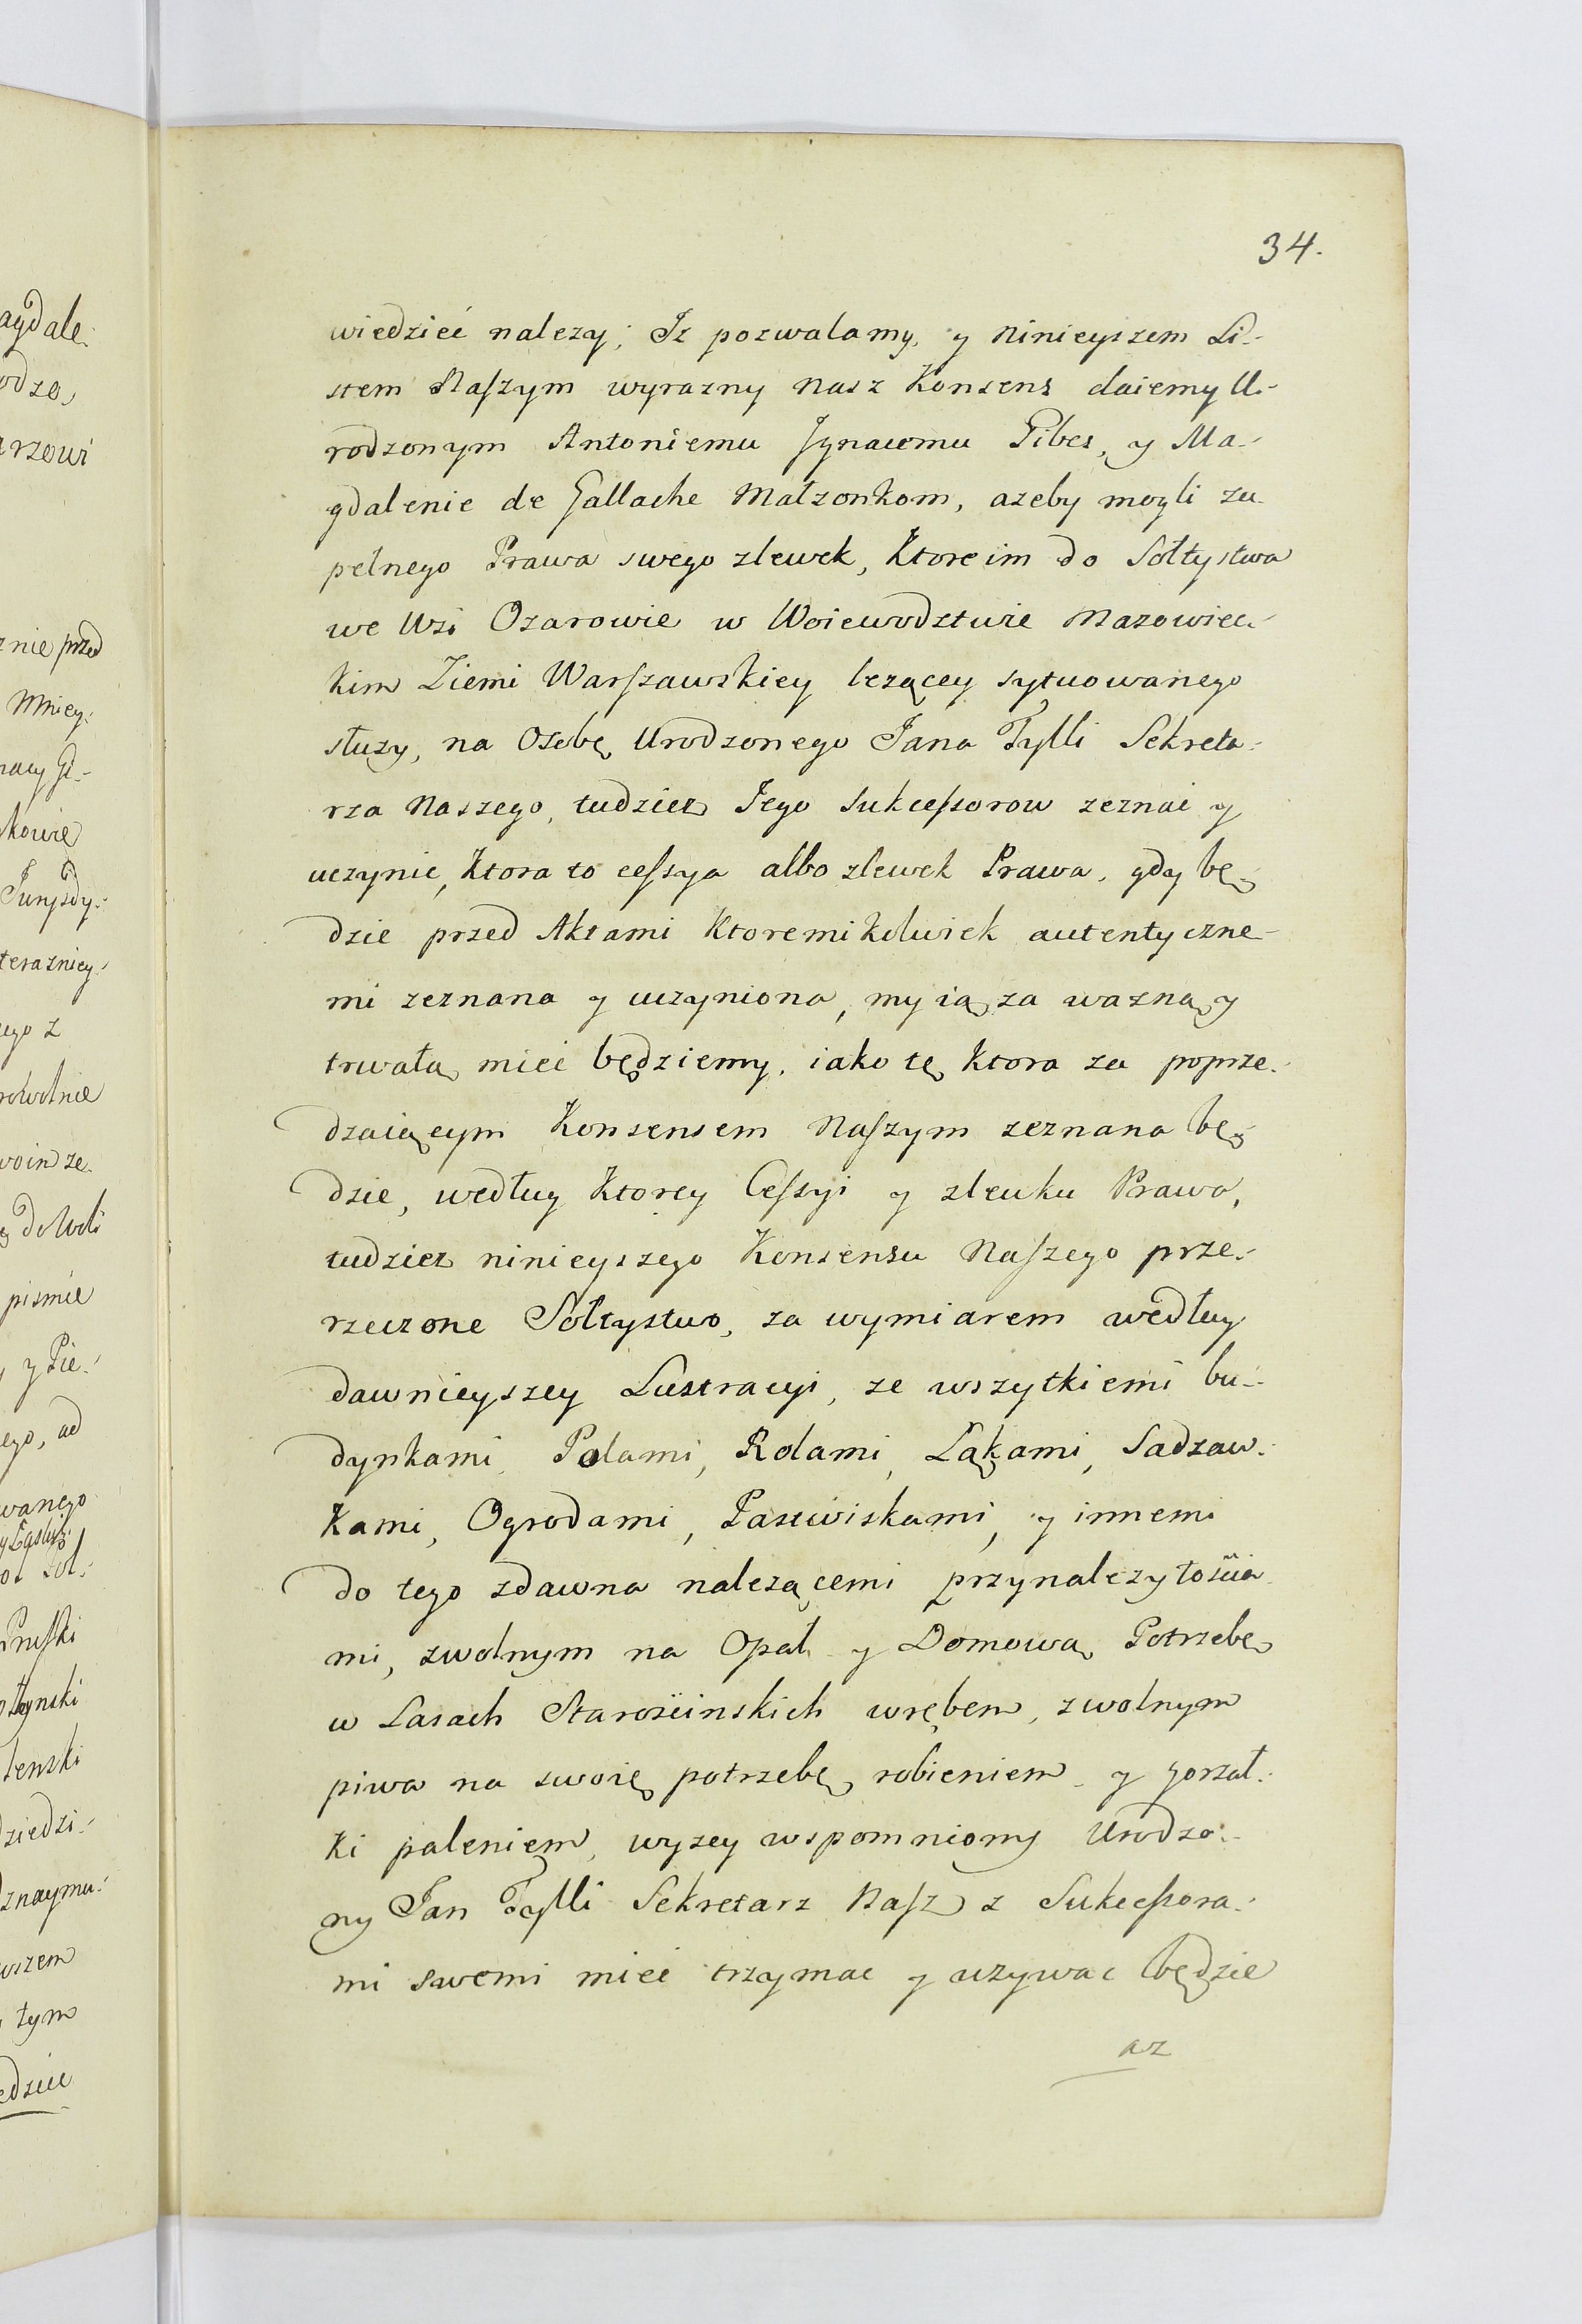 34.
wiedzieć nalezy; Iz pozwalamy, y ninieyszem Li-
stem Naszym wyrazny nasz Konsens daiemy U-
rodzonym Antoniemu Ignacemu Gibes, y Ma-
gdalenie de Gallache Małzonkom, azeby mogli zu-
pełnego Prawa swego zlewek, Ktore im do Sołtystwa
we Wsi Ozarowie w Woiewodztwie Mazowiec-
kim Ziemi Warszawskiey lezącey sytuowanego
słuzy, na Osobę Urodzonego Jana Fylli Sekreta-
rza Naszego, tudziez Jego Sukcessorow zeznać y
uczynic, Ktora to cessya albo zlewek Prawa, gdy bę-
dzie przed Aktami Ktoremikolwiek autentyczne-
mi zeznana y uczyniona, my ią za wazną y
trwałą mieć będziemy, iako tę Ktora za poprze-
dzaiącym Konsensem Naszym zeznana bę-
dzie, według Ktorey Cessyi y zlewku Prawa,
tudziez ninieyszego Konsensu Naszego prze-
rzeczone Sołtystwo, za wymiarem według
dawnieyszey Lustracyi, ze wszytkiemi bu-
dynkami, Polami, Rolami, Ląkami, Sadzaw-
Kami, Ogrodami, Pastwiskami, y innemi
do tego zdawna nalezącemi przynalezytościa-
mi, zwolnym na Opał y Domową Potrzebę
w Lasach Starościnskich wrębem, zwolnym
piwa na swoię potrzebę robieniem y gorzał-
Ki paleniem, wyzey wspomniony Urodzo-
ny Jan Fylli Sekretarz Nasz z Sukcessora-
mi swemi mieć trzymac y uzywac będzie
az